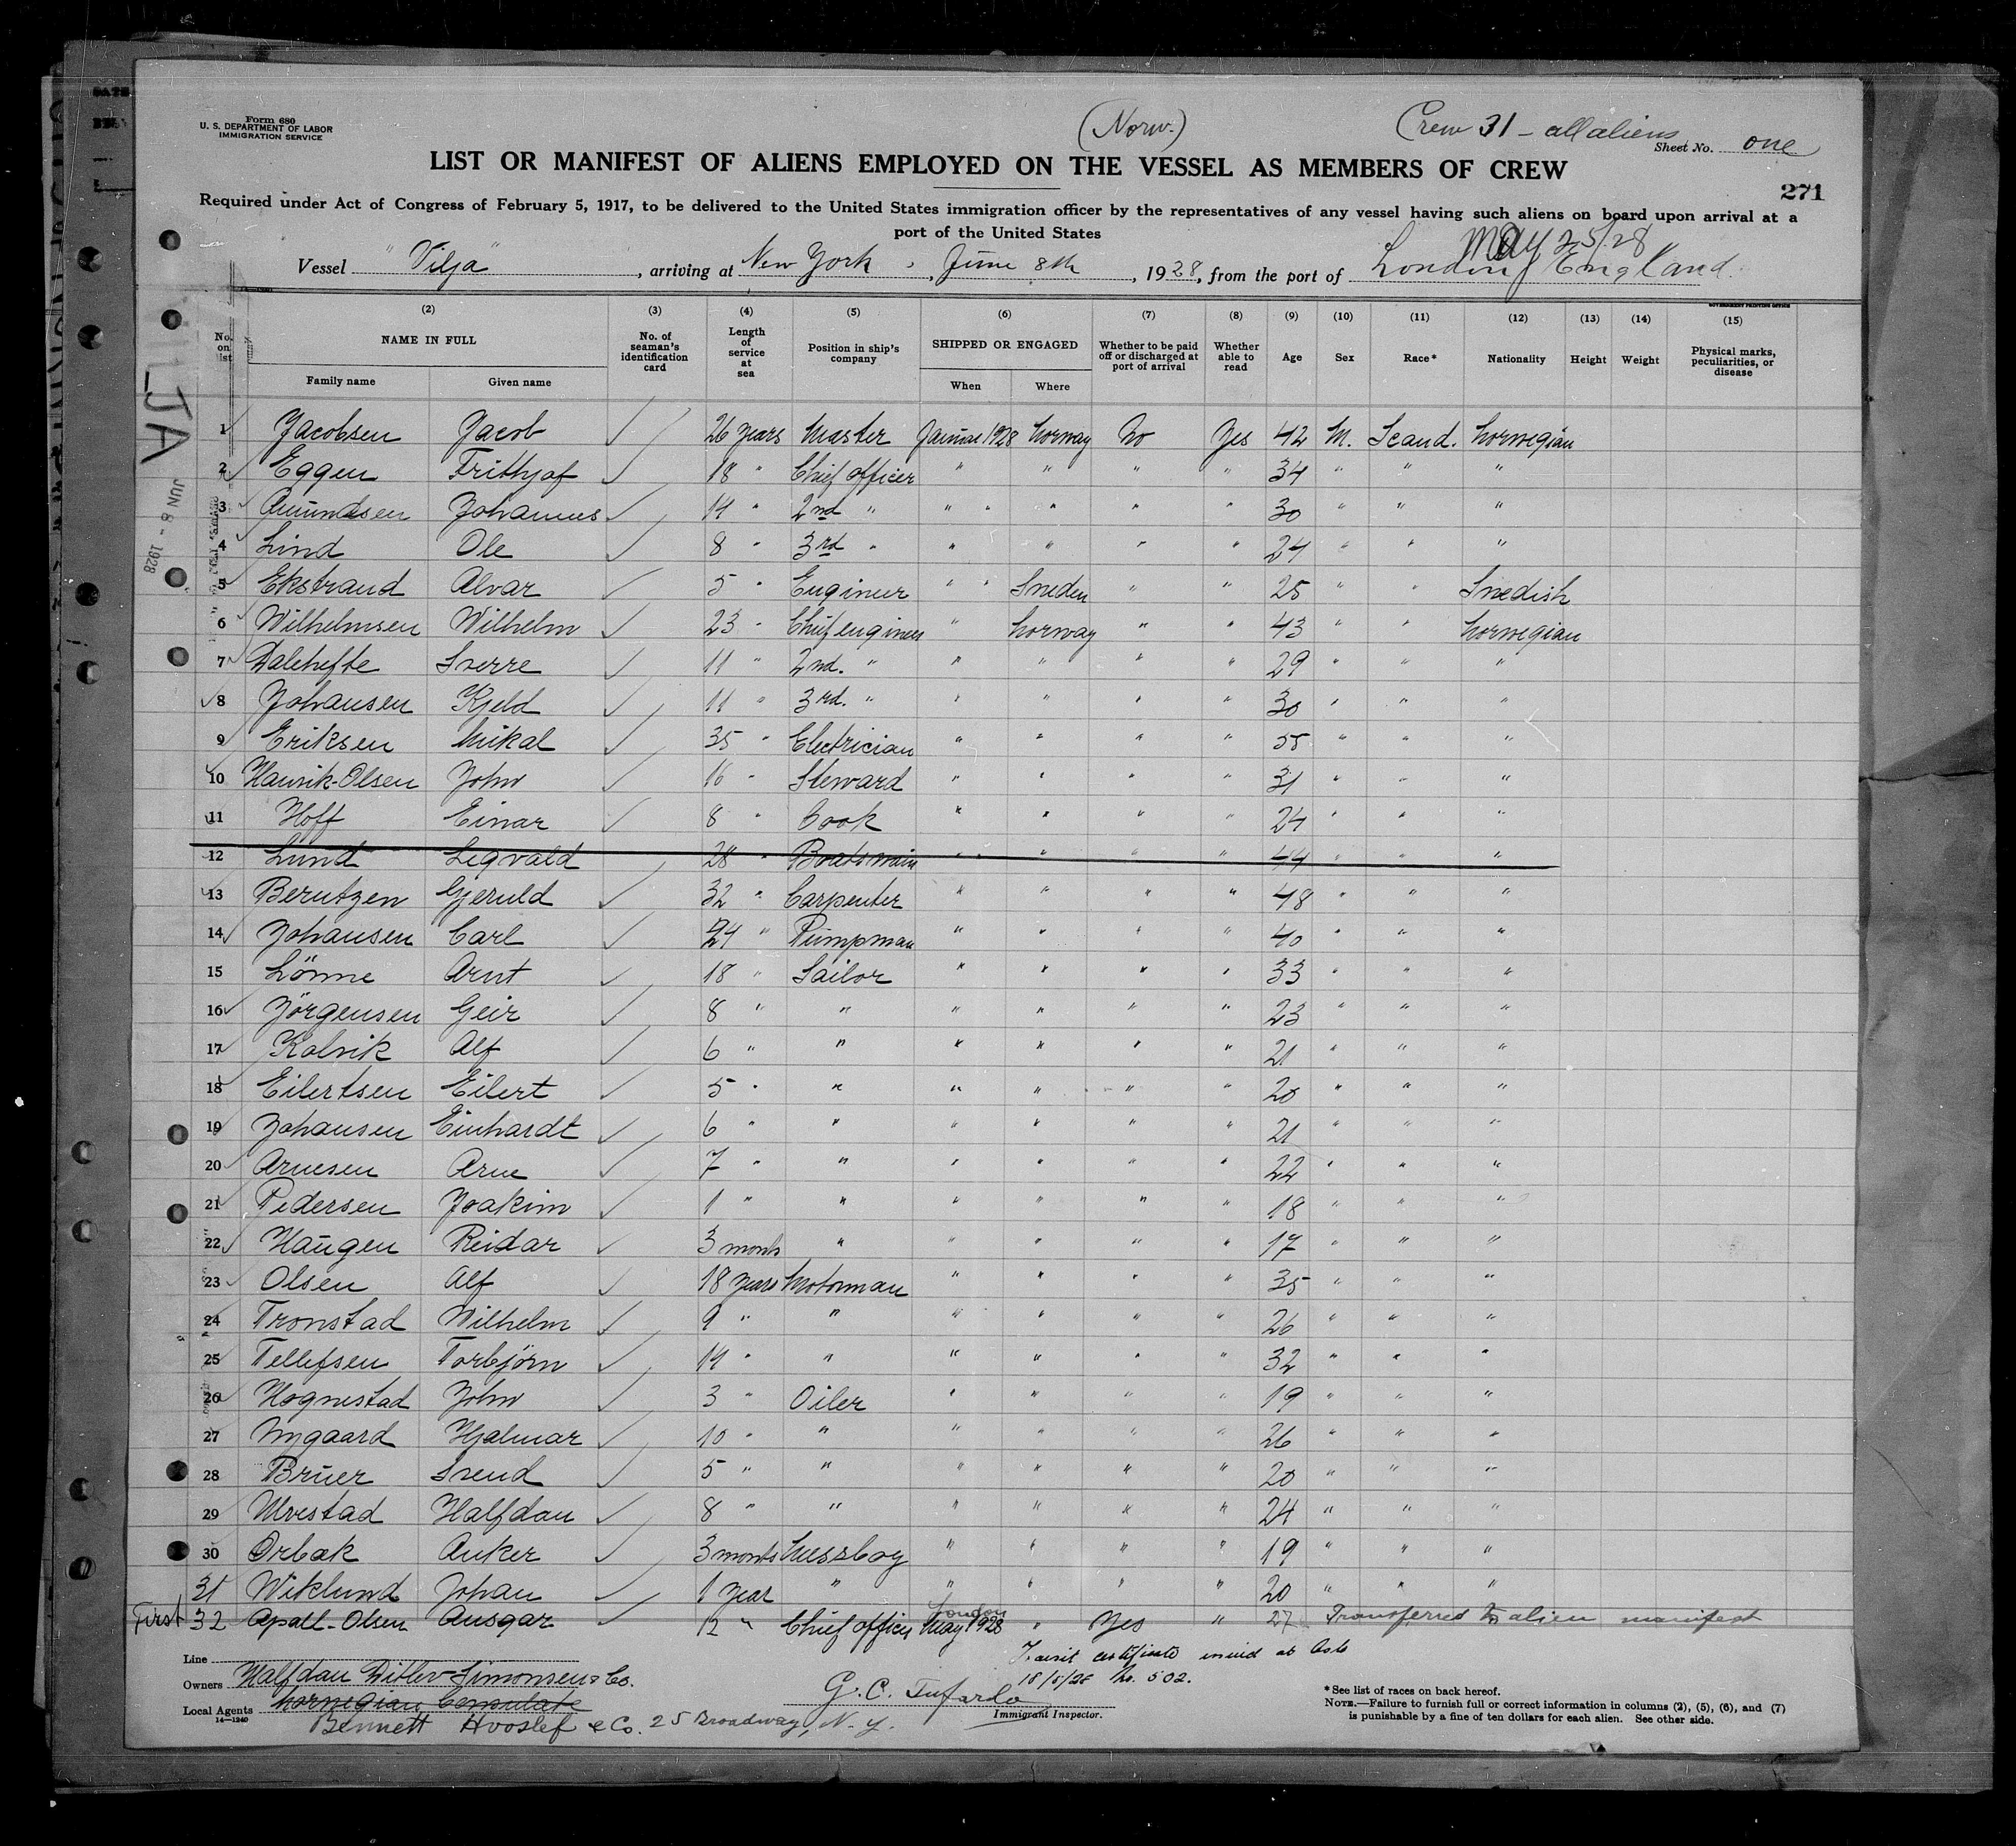 Form 680
U. S. DEPARTMENT OF LABOR
IMMIGRATION SERVICE
(Norw.)
Crew 31 - all aliens
Sheet No. one
LIST OR MANIFEST OF ALIENS EMPLOYED ON THE VESSEL AS MEMBERS OF CREW
271
Required under Act of Congress of February 5, 1917, to be delivered to the United States immigration officer by the representatives of any vessel having such aliens on board upon arrival at a
port of the United States
May 25/28
Vessel "Vilja", arriving at New York, June 8th, 1928, from the port of London England.
GOVERNMENT PRINTING OFFICE
(2) (3) (4) (5) (6) (7) (8) (9) (10) (11) (12) (13) (14) (15)
No. on list NAME IN FULL Family name Given name No. of seaman's identification card Length of service at sea Position in ship's company SHIPPED OR ENGAGED When Where Whether to be paid off or discharged at port of arrival Whether able to read Age Sex Race* Nationality Height Weight Physical marks, peculiarities, or disease
JA
JUN 8 - 1928
1 Jacobsen Jacob 26 years Master Januar 1928 Norway No Yes 42 M. Scand. Norwegian
2 Eggen Frithjof 18 " Chief officer " " " " 34 " " "
3 Amundsen Johannes 14 " 2nd " " " " " " 30 " " "
4 Lind Ole 8 " 3rd " " " " " 24 " " "
5 Ekstrand Alvar 5 " Engineer " " Sweden " " 25 " " Swedish
6 Wilhelmsen Wilhelm 23 " Chief engineer " Norway " " 43 " " Norwegian
7 Dalehefte Sverre 11 " 2nd. " " " " " 29 " " "
8 Johansen Kjeld 11 " 3rd. " " " " " 30 " " "
9 Eriksen Mikal 35 " Electrician " " " " 55 " " "
10 Hanvik-Olsen John 16 " Steward " " " " 31 " " "
11 Hoff Einar 8 " Cook " " " " 24 " " "
12 Lund Legvald 28 " Boatswain " " " " " 44 " " "
13 Berntzen Gjeruld 32 " Carpenter " " " " 48 " " "
14 Johansen Carl 24 " Pumpman " " " " 40 " " "
15 Lönne Arnt 18 " Sailor " " " " 33 " " "
16 Jörgensen Geir 8 " " " " " " 23 " " "
17 Kolvik Alf 6 " " " " " " 21 " " "
18 Eilertsen Eilert 5 " " " " " " 20 " " "
19 Johansen Einhardt 6 " " " " " " 21 " " "
20 Arnesen Arne 7 " " " " " " 22 " " "
21 Pedersen Joakim 1 " " " " " " 18 " " "
22 Haugen Reidar 3 months " " " " " 17 " " "
23 Olsen Alf 18 years Motorman " " " " 35 " " "
24 Tronstad Wilhelm 9 " " " " " " 26 " " "
25 Tellefsen Torbjörn 14 " " " " " " 32 " " "
26 Hognestad John 3 " Oiler " " " " 19 " " "
27 Nygaard Hjalmar 10 " " " " " " 26 " " "
28 Bruer Svend 5 " " " " " " 20 " " "
29 Ulvestad Halfdan 8 " " " " " " 24 " " "
30 Orbak Anker 3 months Messboy " " " " 19 " " "
31 Wiklund Johan 1 year " " " " " 20 " " "
First 32 Apall-Olsen Ansgar 12 " Chief officer May 1928 London " Yes " 27 Transferred to alien manifest
Line
Transit certificate issued at Oslo
18/5/28 No. 502.
Owners Halfdan Ditlev-Simonsen & Co.
Local Agents Norwegian Consulate
14-1240
Bennett Hvoslef & Co. 25 Broadway, N. Y.
G. C. Tufardo
Immigrant Inspector.
* See list of races on back hereof.
NOTE.—Failure to furnish full or correct information in columns (2), (5), (6), and (7)
is punishable by a fine of ten dollars for each alien. See other side.